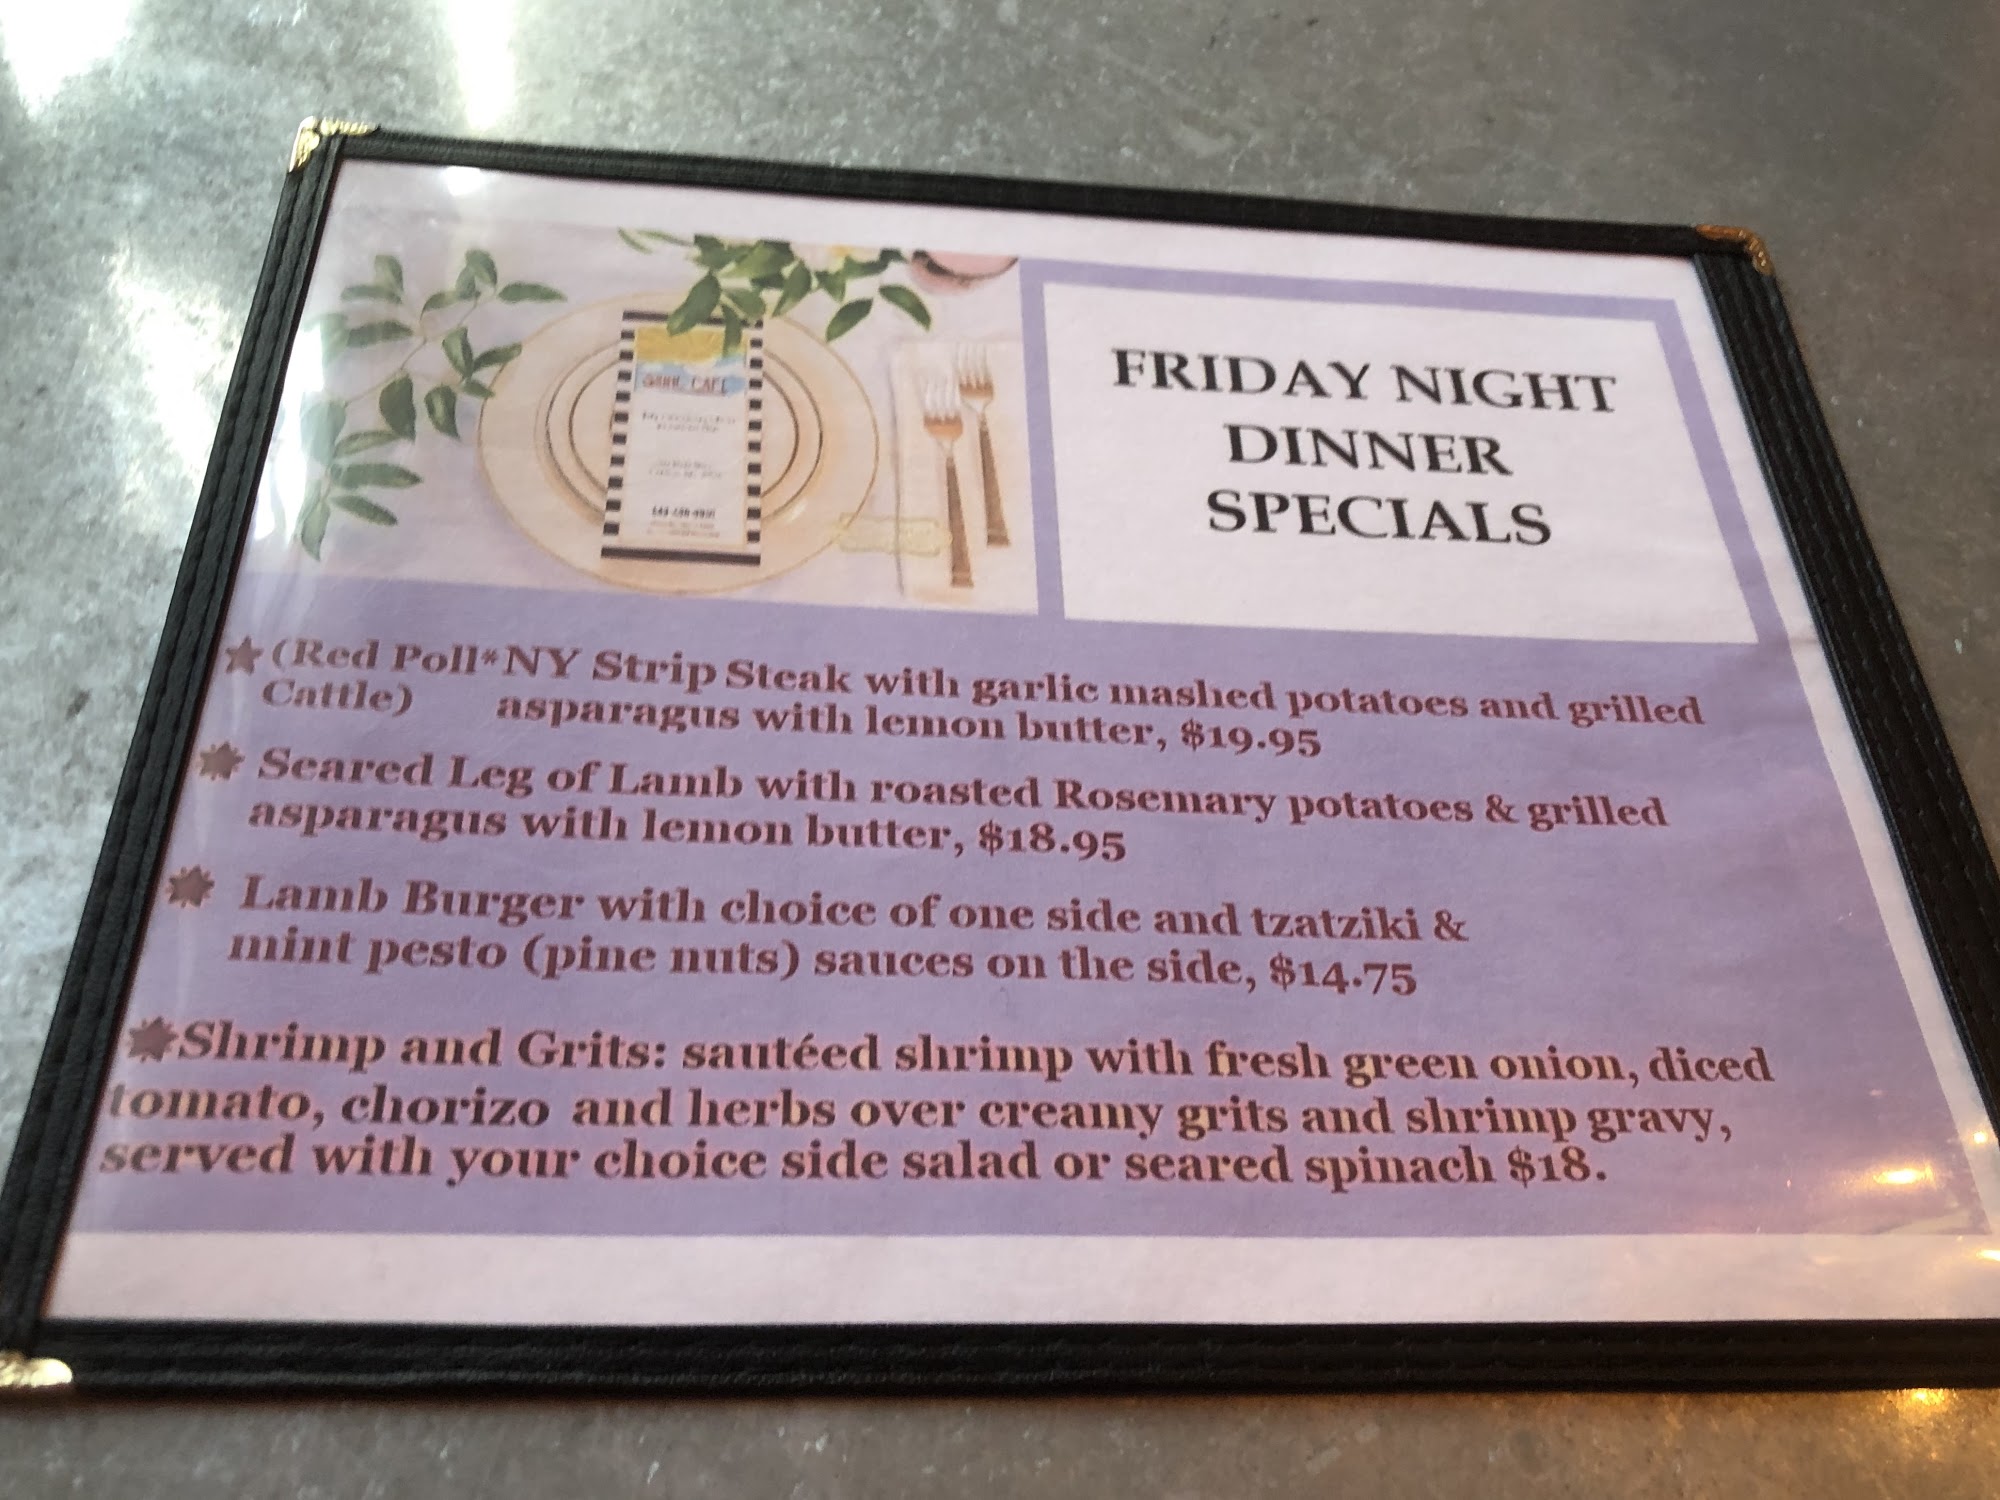 FRIDAY NIGHT
DINNER
SPECIALS
(Red Poll*NY Strip Steak with garlic mashed potatoes and grilled
Cattle) asparagus with lemon butter, $19.95
Seared Leg of Lamb with roasted Rosemary potatoes & grilled
asparagus with lemon butter, $18.95
Lamb Burger with choice of one side and tzatziki &
mint pesto (pine nuts) sauces on the side, $14.75
Shrimp and Grits: sautéed shrimp with fresh green onion, diced
tomato, chorizo and herbs over creamy grits and shrimp gravy,
served with your choice side salad or seared spinach $18.